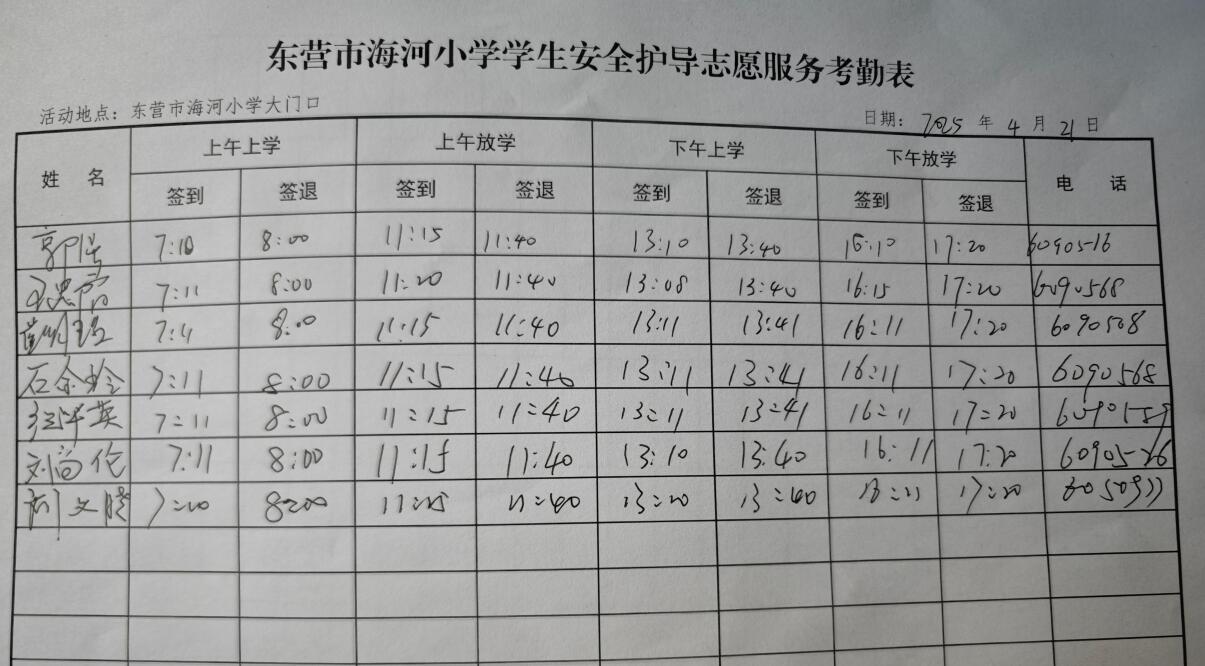 东营市海河小学学生安全护导志愿服务考勤表
活动地点：东营市海河小学大门口 日期：2025 年 4 月 21 日
姓 名 上午上学 上午放学 下午上学 下午放学 电 话
签到 签退 签到 签退 签到 签退 签到 签退
7:10 8:00 11:15 11:40 13:10 13:40 16:10 17:20 6090516
7:11 8:00 11:20 11:40 13:08 13:40 16:15 17:20 6090568
8:00 11:15 11:40 13:11 13:41 16:11 17:20 6090508
石余玲 7:11 8:00 11:15 11:40 13:11 13:41 16:11 17:20 6090568
7:11 8:00 11:15 11:40 13:11 13:41 16:11 17:20
刘尚伦 7:11 8:00 11:15 11:40 13:10 13:40 16:11 17:20 6090526
8:00 11:40 13:20 13:40 17:20